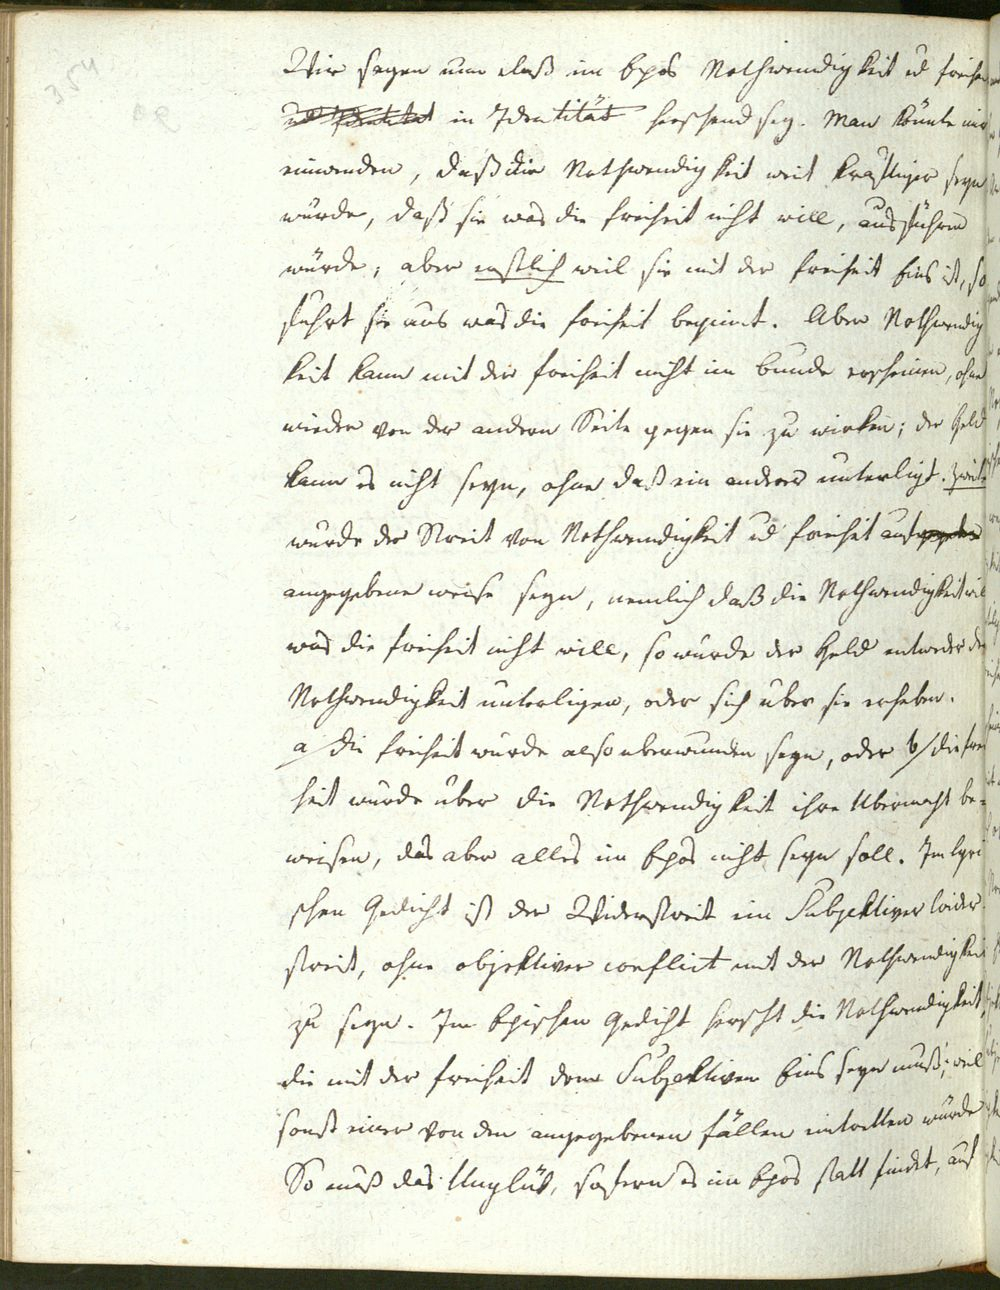 354
Wir sagen nun daß im Epos Nothwendigkeit ud Freiheit
ud Identitet in Identität herschend sey. Man könte mir
einwenden, daß die Nothwendigkeit weit kräftiger seyn
würde, daß sie was die Freiheit nicht will, ausführen
würde; aber erstlich weil sie mit der Freiheit Eins ist, so
führt sie aus was die Freiheit beginnt. Aber Nothwendig
keit kann mit der Freiheit nicht im Bunde erscheinen, ohne
wieder von der andern Seite gegen sie zu wirken; der Held
kann es nicht seyn, ohne daß ein anderer unterligt. Zweitens
wurde der Streit von Nothwendigkeit ud Freiheit auf
angegebene weise seyn, nemlich daß die Nothwendigkeit will
was die Freiheit nicht will, so wurde der Held entweder der
Nothwendigkeit unterligen, oder sich uber sie erheben.
a/ die Freiheit wurde also uberwunden seyn, oder b/ die Frei
heit wurde uber die Nothwendigkeit ihre Ubermacht be=
weisen, das aber alles im Epos nicht seyn soll. Im lyri
schen Gedicht ist der Widerstreit ein Subjektiver Wider
streit, ohne objektiver conflict mit der Nothwendigkeit
zu seyn. Im Epischen Gedicht herscht die Nothwendigkeit,
die mit der Freiheit dem Subjektiven Eins seyn muß; weil
sonst einer von den angegebenen Fällen eintretten würde
So muß das Unglük, sofern es im Epos statt findet, auf